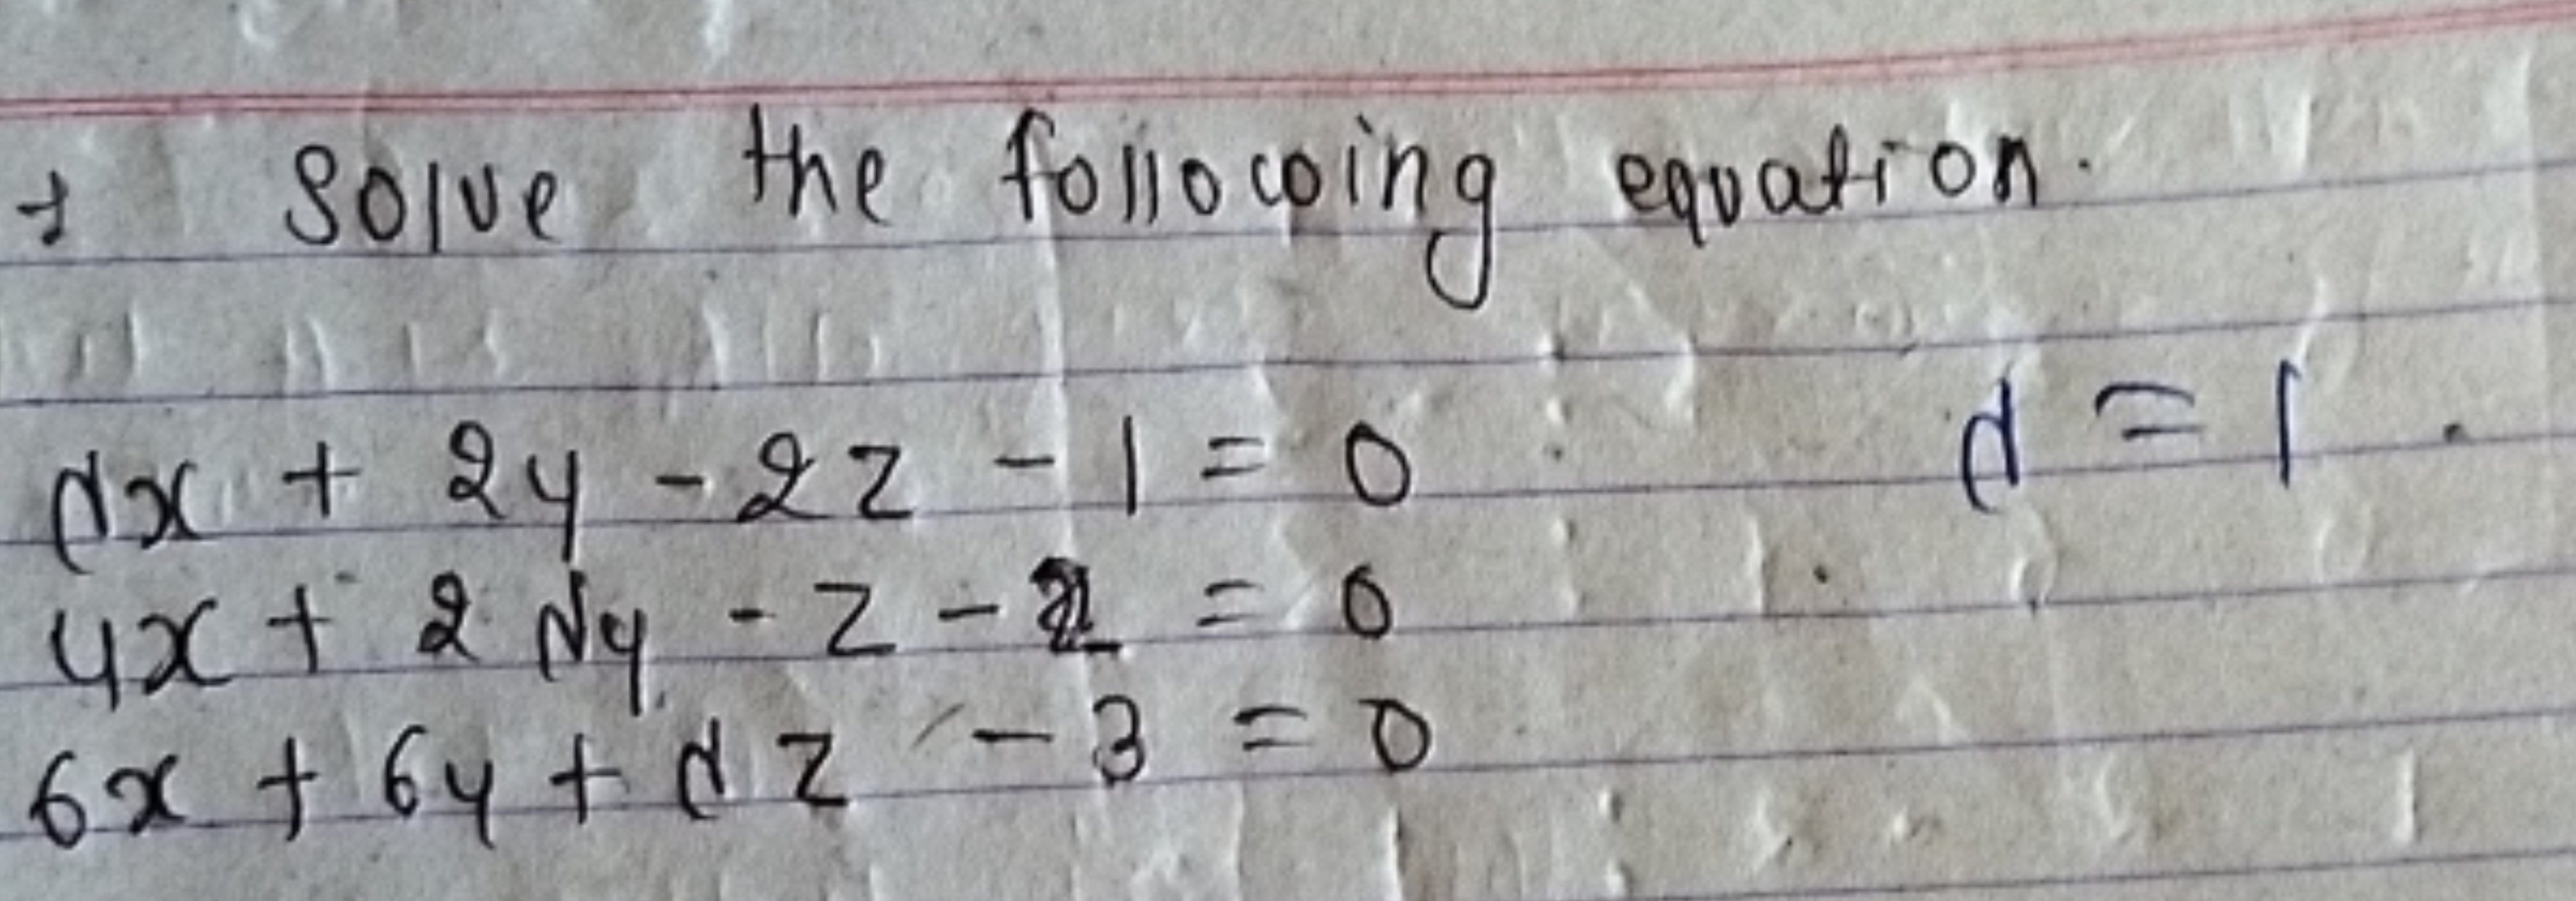 → Solve the following equation.
λx + 2y - 2z - 1 = 0 λ = 1
4x + 2λy - z - 2 = 0
6x + 6y + λz - 3 = 0